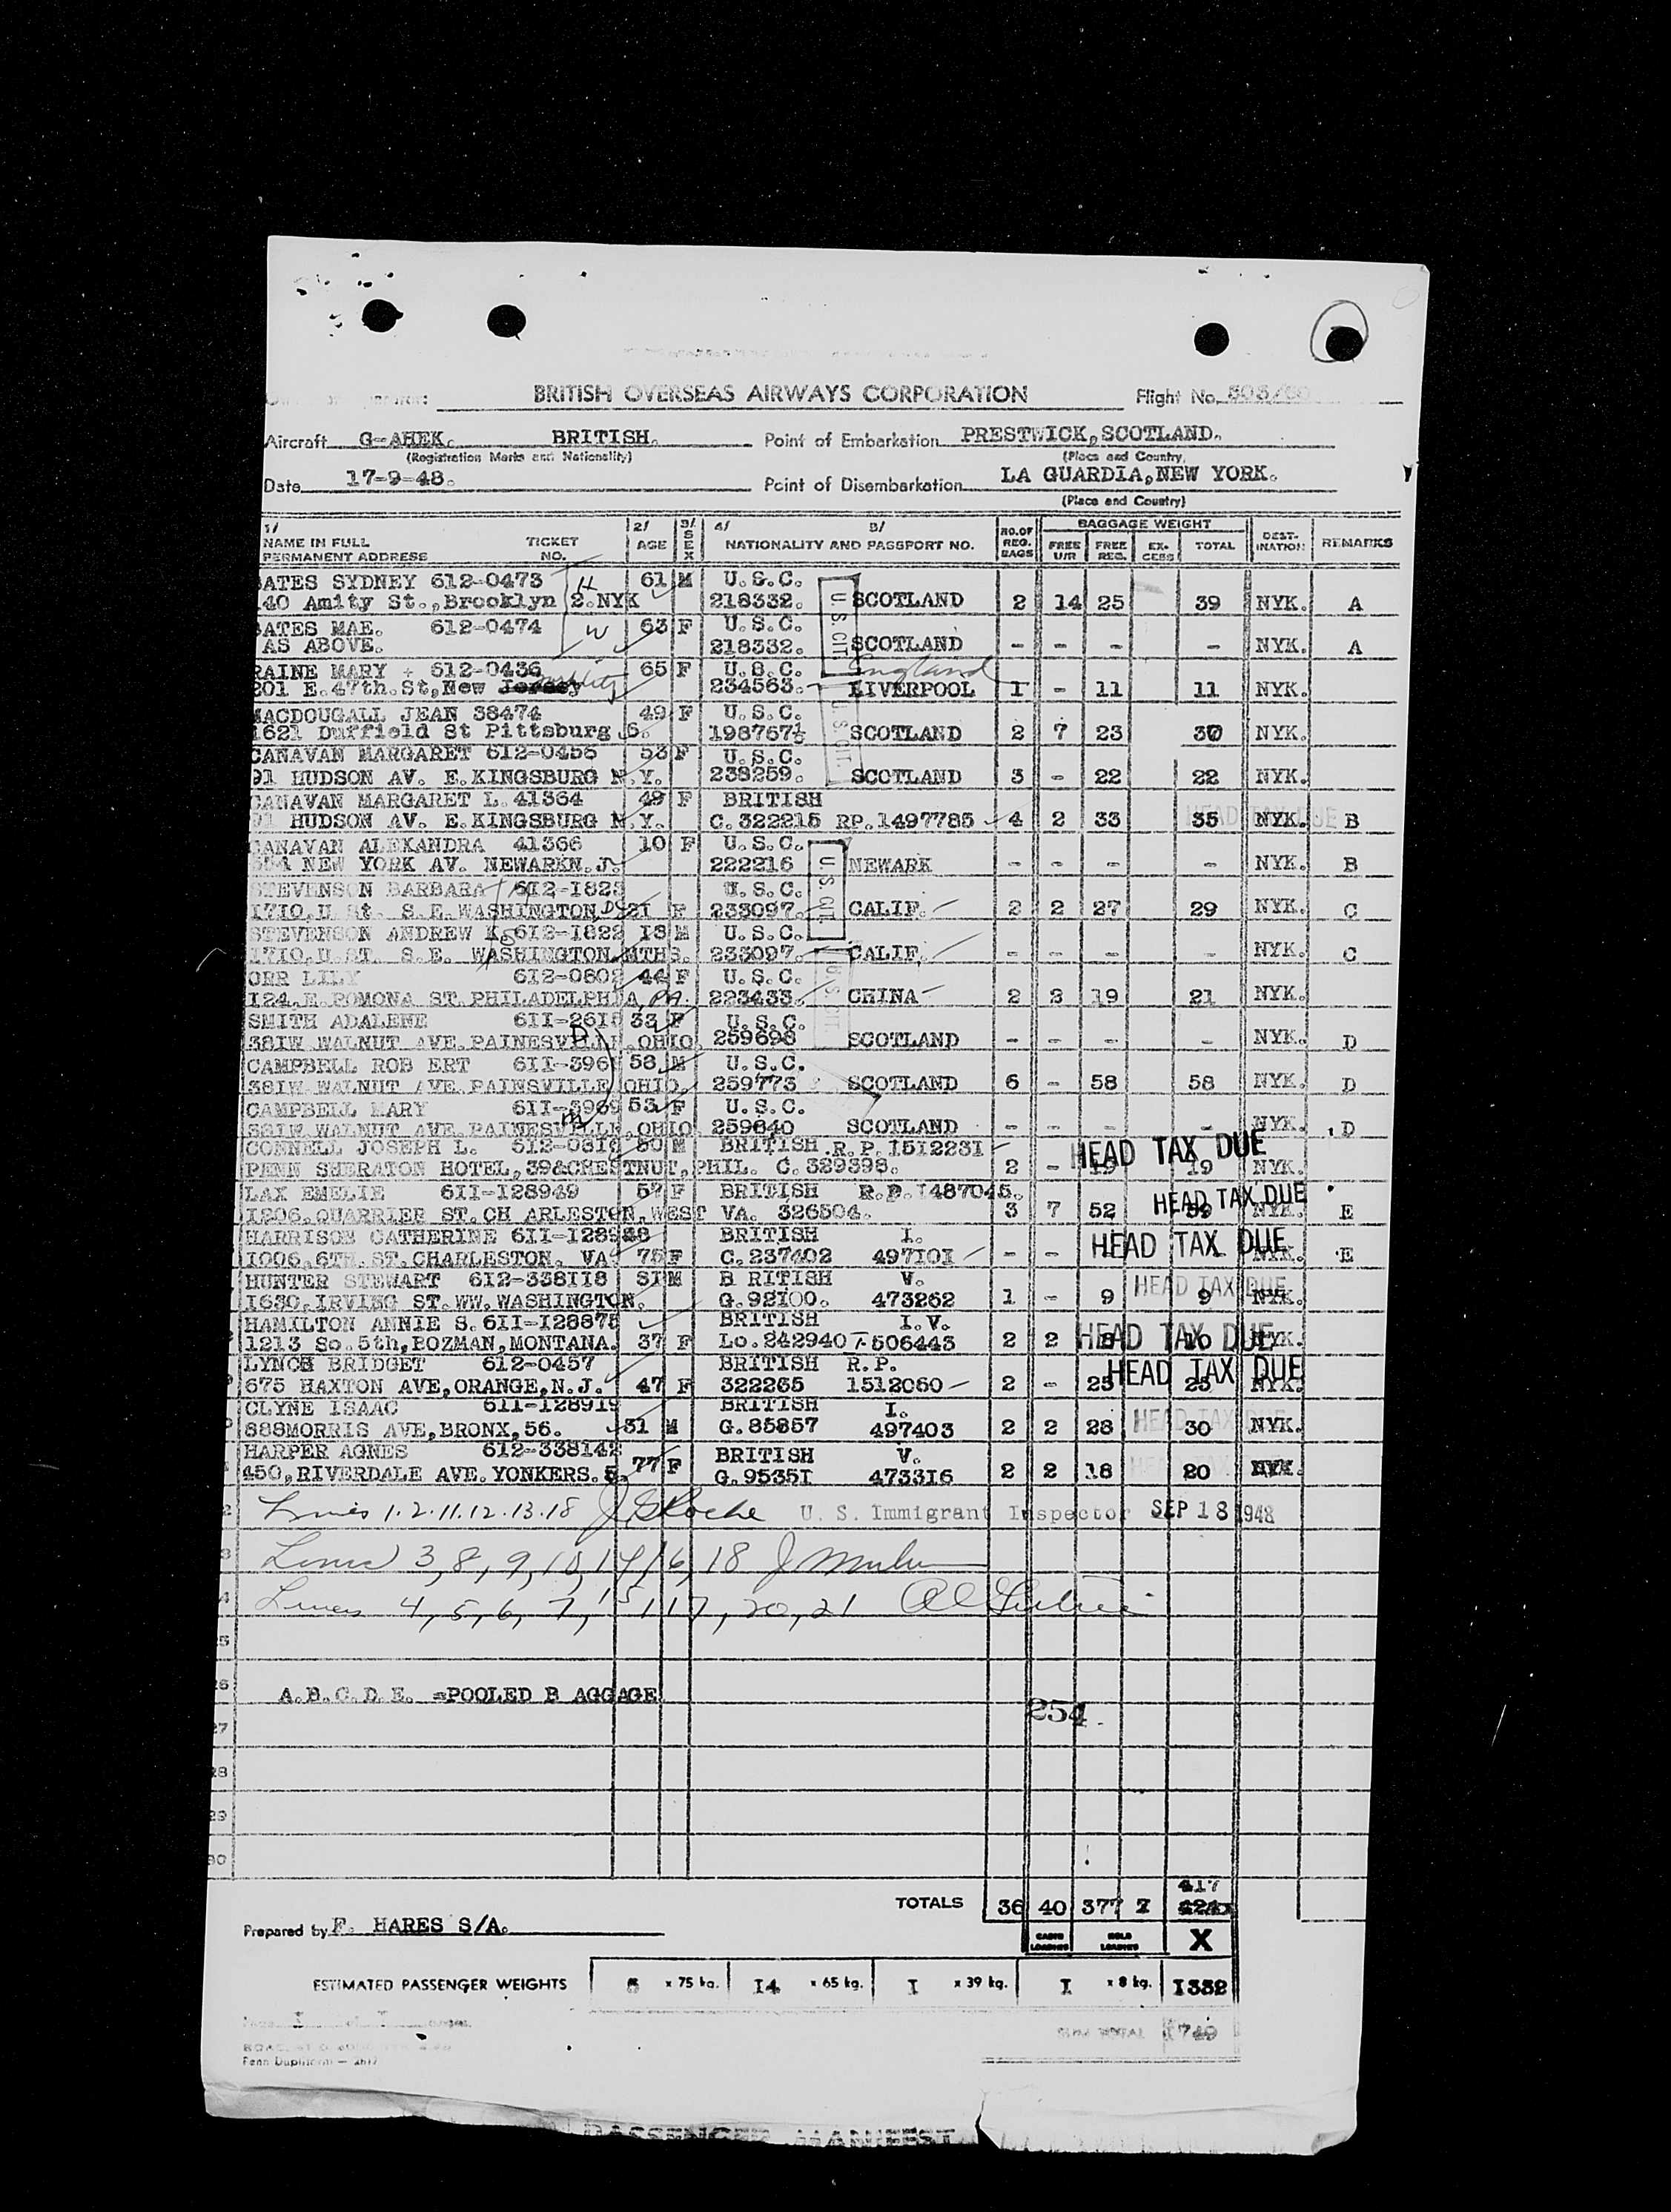 BRITISH OVERSEAS AIRWAYS CORPORATION Flight No.
Aircraft G-AHEK. BRITISH. Point of Embarkation PRESTWICK, SCOTLAND.
(Registration Marks and Nationality) (Place and Country)
Date 17-9-48. Point of Disembarkation LA GUARDIA, NEW YORK.
(Place and Country)
1/ 2/ 3/ 4/ 5/ BAGGAGE WEIGHT
NAME IN FULL TICKET AGE SEX NATIONALITY AND PASSPORT NO. NO. OF REG. BAGS FREE U/R FREE REG. EX-CESS TOTAL DEST-INATION REMARKS
PERMANENT ADDRESS NO.
BATES SYDNEY 612-0473 H 61 M U.S.C.
140 Amity St., Brooklyn 2. NYK 218332. SCOTLAND 2 14 25 39 NYK. A
BATES MAE. 612-0474 W 63 F U.S.C.
AS ABOVE. 218332. SCOTLAND - - - - NYK. A
U.S.CIT.
RAINE MARY 612-0436 65 F U.S.C. England
201 E. 47th. St, New Jersey 234563. LIVERPOOL 1 - 11 11 NYK.
MACDOUGALL JEAN 38474 49 F U.S.C.
1621 Duffield St Pittsburg 6. 198767½ SCOTLAND 2 7 23 30 NYK.
U.S.CIT.
CANAVAN MARGARET 612-0456 53 F U.S.C.
91 HUDSON AV. E. KINGSBURG N.Y. 238259. SCOTLAND 3 - 22 22 NYK.
CANAVAN MARGARET L. 41364 49 F BRITISH
91 HUDSON AV. E. KINGSBURG N.Y. C.322215 RP.1497785 4 2 33 35 HEAD TAX DUE NYK. B
CANAVAN ALEXANDRA 41366 10 F U.S.C.
NEW YORK AV. NEWARKN.J. 222216 NEWARK - - - - NYK. B
STEVENSON BARBARA 612-1823 U.S.C.
1710. U St. S.E. WASHINGTON, DC 21 F 233097. U.S.CIT. CALIF. 2 2 27 29 NYK. C
STEVENSON ANDREW K. 612-1822 13 M U.S.C.
1710. U ST. S.E. WASHINGTON. MTHS. 233097. CALIF. - - - - NYK. C
ORR LILY 612-0802 44 F U.S.C.
124. E. POMONA ST. PHILADELPHIA, PA. 223433. U.S.CIT. CHINA 2 2 19 21 NYK.
SMITH ADALENE 611-2615 33 F U.S.C.
381W. WALNUT AVE. PAINESVILLE. OHIO. 259698 SCOTLAND - - - - NYK. D
CAMPBELL ROB ERT 611-3968 58 M U.S.C.
381W. WALNUT AVE. PAINSVILLE OHIO. 259773 SCOTLAND 6 - 58 58 NYK. D
CAMPBELL MARY 611-3969 53 F U.S.C.
381W. WALNUT AVE. PAINESVILLE, OHIO 259640 SCOTLAND - - - - NYK. D
CONNELL JOSEPH L. 612-0816 50 M BRITISH. R.P. 1512231
PENN SHERATON HOTEL, 39&CHESTNUT, PHIL. C. 329398. 2 - 19 HEAD TAX DUE 19 NYK.
LAX EMELIE 611-128949 57 F BRITISH R.P. 1487045.
1206. QUARRIER ST. CH ARLESTON, WEST VA. 326504. 3 7 52 HEAD TAX DUE 59 NYK. E
HARRISON CATHERINE 611-128948 BRITISH I.
1006. 6TH. ST. CHARLESTON. VA 75 F C.237402 497101 - - HEAD TAX DUE NYK. E
HUNTER STEWART 612-338118 81 M B RITISH V.
1630. IRVING ST. WW. WASHINGTON. G.92100. 473262 1 - 9 HEAD TAX DUE 9 NYK.
HAMILTON ANNIE S. 611-128875 BRITISH I.V.
1213 So. 5th, BOZMAN, MONTANA. 37 F Lo.242940 506443 2 2 8 HEAD TAX DUE 10 NYK.
LYNCH BRIDGET 612-0457 BRITISH R.P.
675 HAXTON AVE, ORANGE, N.J. 47 F 322265 1512060 2 - 25 HEAD TAX DUE 25 NYK.
CLYNE ISAAC 611-128919 BRITISH I.
888MORRIS AVE, BRONX, 56. 31 M G.85857 497403 2 2 28 HEAD TAX DUE 30 NYK.
HARPER AGNES 612-338142 BRITISH V.
450, RIVERDALE AVE. YONKERS. 5. 77 F G.95351 473316 2 2 18 HEAD TAX 20 NYK.
Lines 1.2.11.12.13.18 J. G. Roche U. S. Immigrant Inspector SEP 18 1948
Lines 3, 8, 9, 10, 14, 16, 18
Lines 4, 5, 6, 7, 15, 17, 20, 21
A.B.C.D.E. =POOLED B AGGAGE
254
27
28
29
30
417
TOTALS 36 40 377 7 424
Prepared by F. HARES S/A.
CABIN LOADING HOLD LOADING X
ESTIMATED PASSENGER WEIGHTS 5 x 75 kg. 14 x 65 kg. 1 x 39 kg. 1 x 8 kg. 1332
SUM TOTAL 1749
PASSENGER MANIFEST